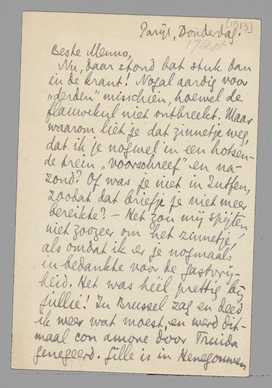 Parijs, Donderdag. [1933]
Beste Menno,
Nu, daar stond dat stuk dan
in de krant! Nogal aardig voor
"derden" misschien, hoewel de
flauwekul niet ontbreekt. Maar
waarom liet je dat zinnetje weg,
dat ik je nogwel in een hotsen-
de trein "voorschreef" en na-
zond? Of was je niet in Zutfen,
zoodat dat briefje je niet meer
bereikte? – Het zou mij spijten,
niet zoozeer om het zinnetje,
als omdat ik er je nogmaals
in bedankte voor de gastvrij-
heid. Het was heel prettig bij
jullie! In Brussel zag en deed
ik weer wat moest, en werd dit-
maal con amore door Truida
genegeerd. Jille is in Henegouwen